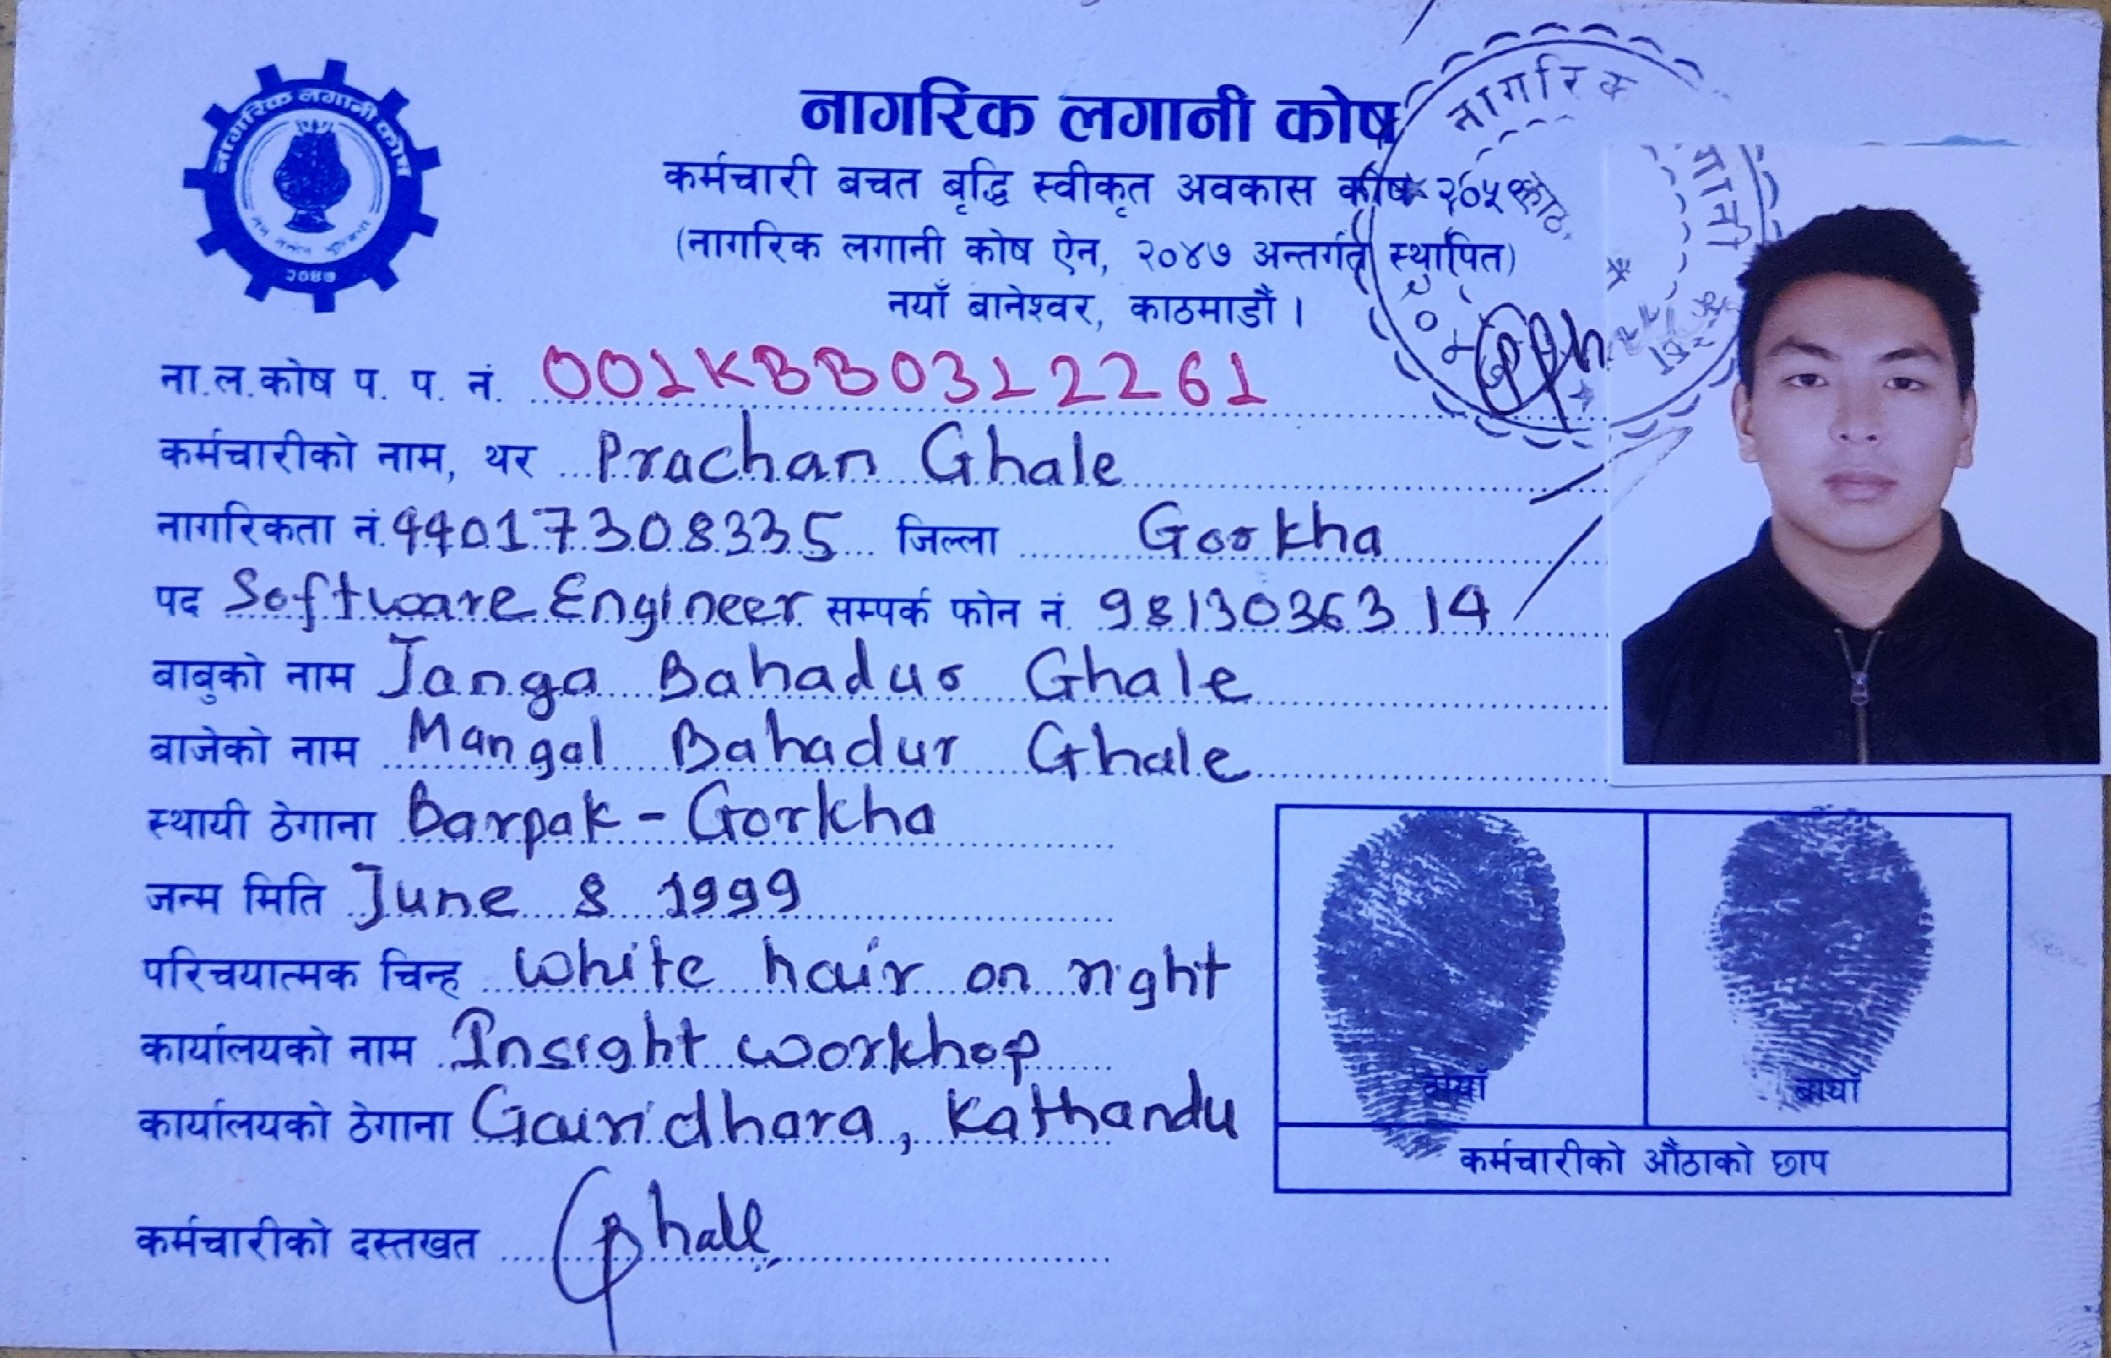 नागरिक लगानी कोष
२०४७
नागरिक लगानी कोष
कर्मचारी बचत बृद्धि स्वीकृत अवकास कोष
(नागरिक लगानी कोष ऐन, २०४७ अन्तर्गत स्थापित)
नयाँ बानेश्वर, काठमाडौं ।
नागरिक
ना.ल.कोष प. प. नं. 001KBB0312261
कर्मचारीको नाम, थर Prachan Ghale
नागरिकता नं. 44017308335 जिल्ला Gorkha
पद Software Engineer सम्पर्क फोन नं. 9813036314
बाबुको नाम Janga Bahadur Ghale
बाजेको नाम Mangal Bahadur Ghale
स्थायी ठेगाना Barpak - Gorkha
जन्म मिति June 8 1999
परिचयात्मक चिन्ह White hair on right
कार्यालयको नाम Insight workhop
कार्यालयको ठेगाना Gairidhara, Kathandu
दायाँ बायाँ
कर्मचारीको औंठाको छाप
कर्मचारीको दस्तखत Ghale